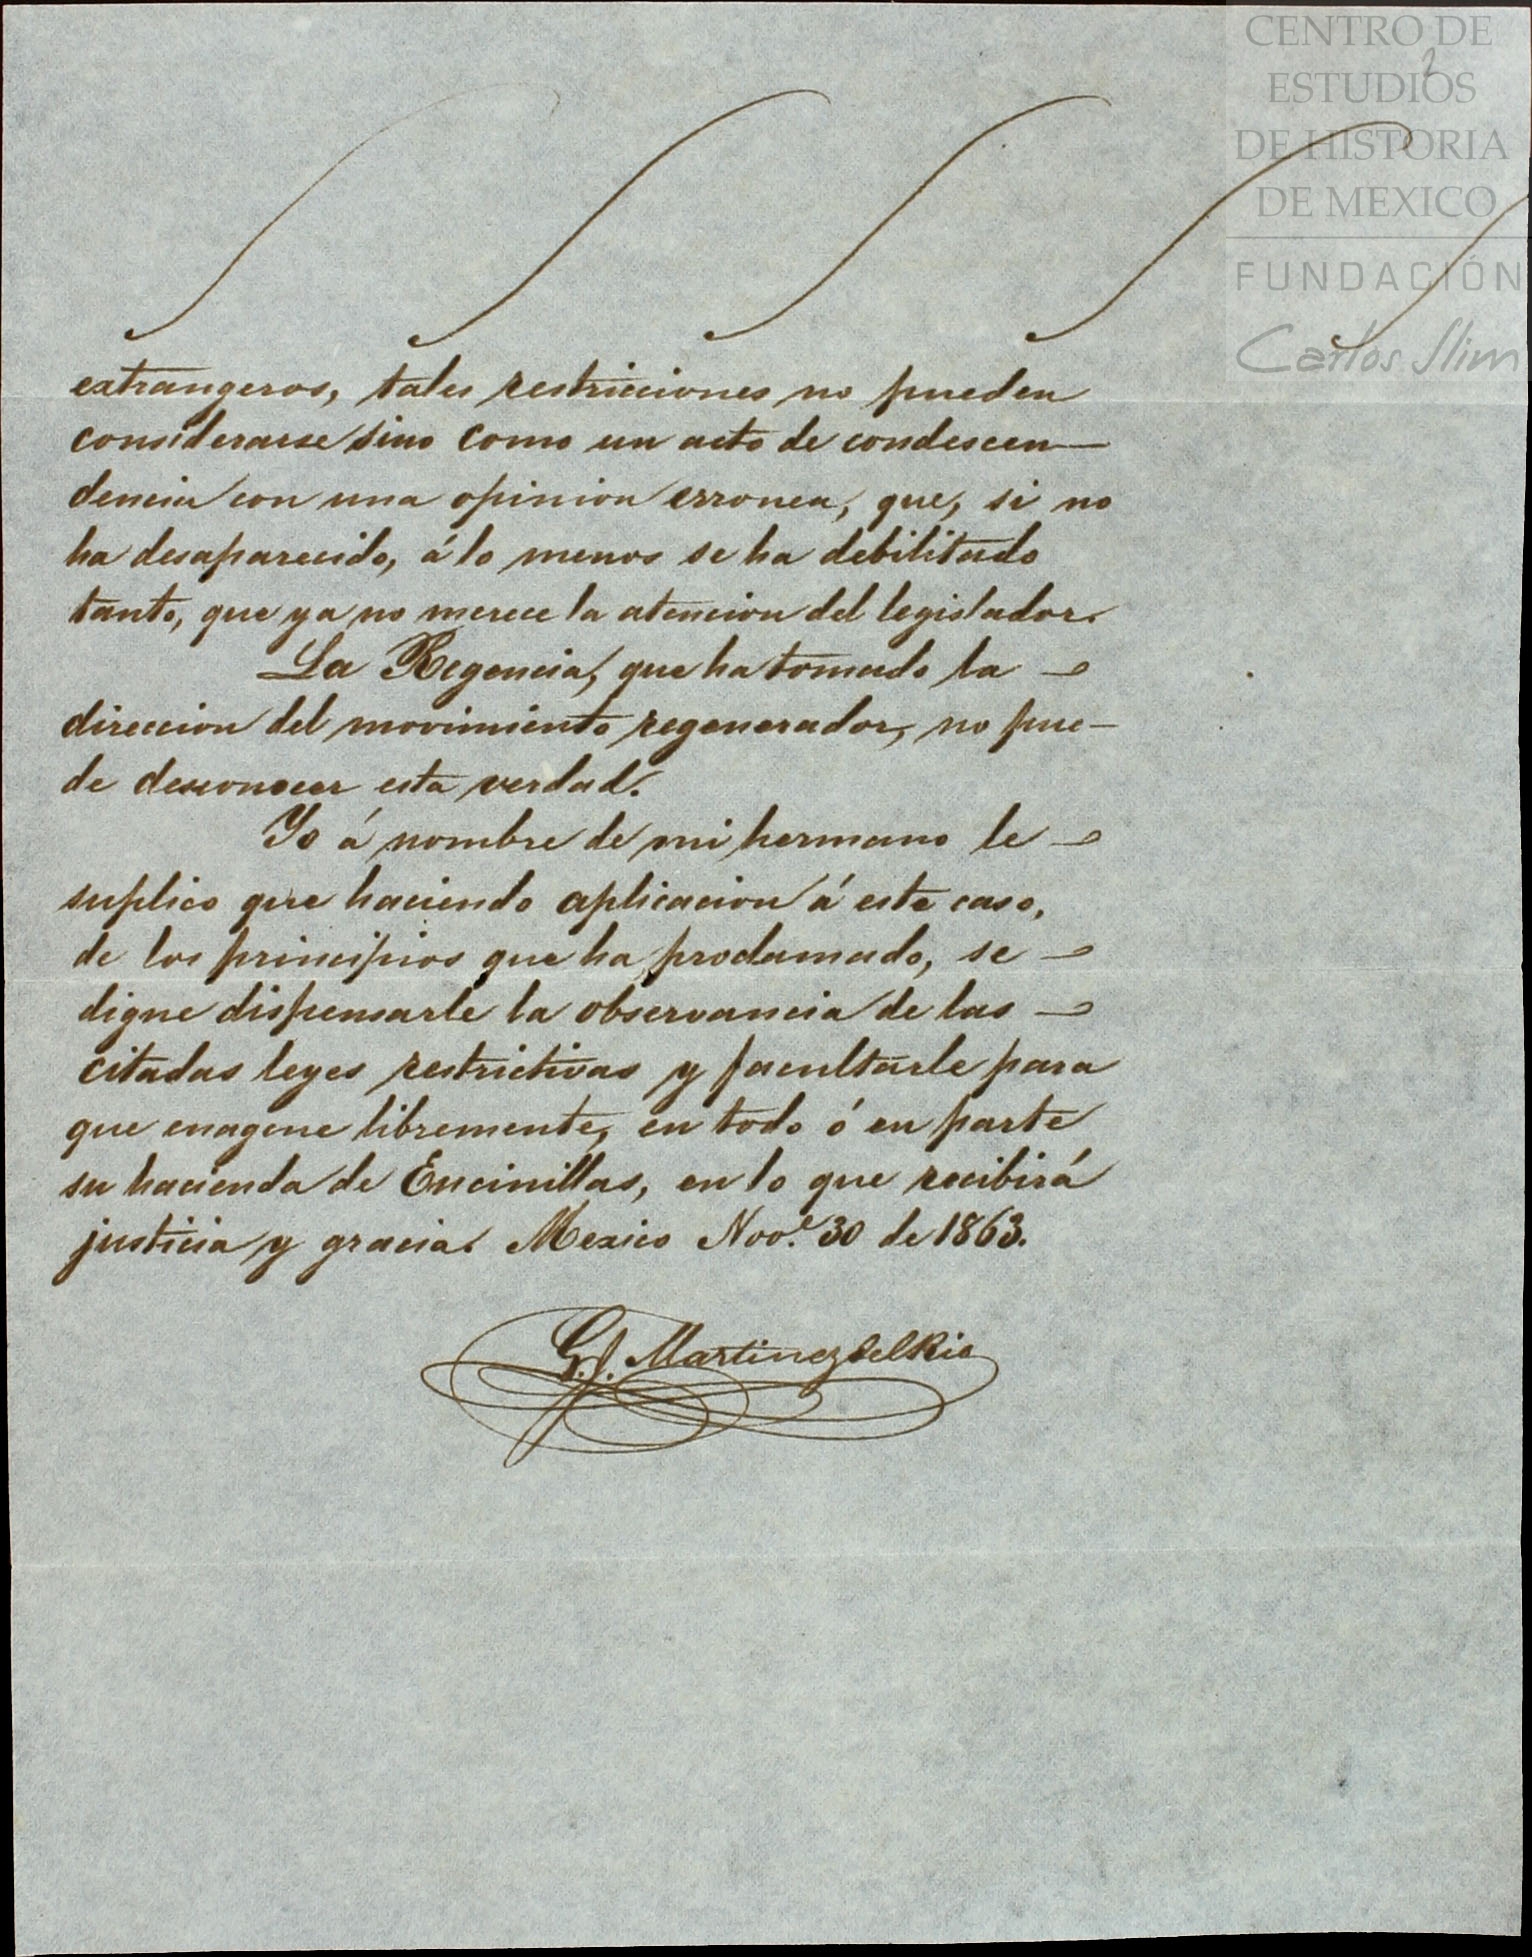 CENTRO DE
ESTUDIOS
DE HISTORIA
DE MEXICO
FUNDACIÓN
Carlos Slim
2
extrangeros, tales restricciones no pueden
considerarse sino como un acto de condescen-
dencia con una opinion erronea, que, si no
ha desaparecido, á lo menos se ha debilitado
tanto, que ya no merece la atencion del legislador.
La Regencia, que ha tomado la
direccion del movimiento regenerador, no pue-
de desconocer esta verdad.
Yo á nombre de mi hermano le
suplico que haciendo aplicacion á este caso,
de los principios que ha proclamado, se
digne dispensarle la observancia de las
citadas leyes restrictivas y facultarle para
que enagene libremente, en todo ó en parte
su hacienda de Encinillas, en lo que recibirá
justicia y gracia. Mexico Nov.e 30 de 1863.
G. J. Martinez del Rio